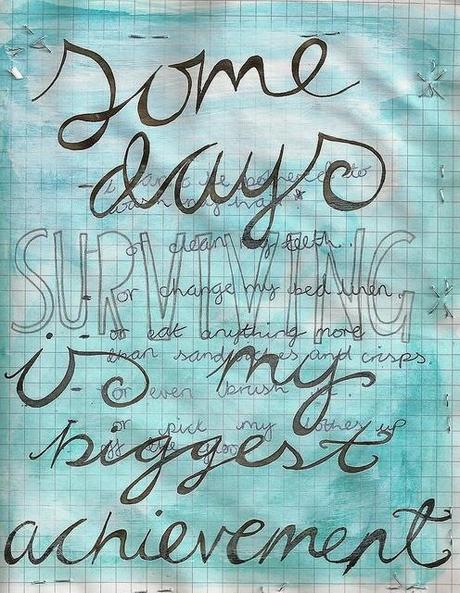 some
days
SURVIVING
is my
biggest
achievement
- i can't be bothered to
wash my hair
or clean my teeth.
- or change my bed linen.
- or eat anything more
than sandwiches and crisps.
- or even brush
or pick my clothes up
off the floor